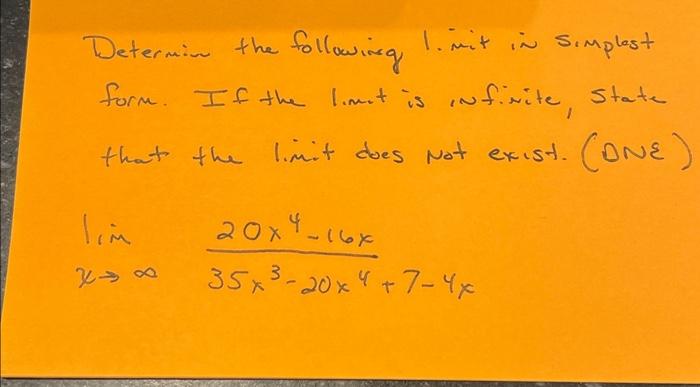 Determin the following limit in simplest
form. If the limit is infinite, state
that the limit does not exist. (DNE)
lim 20x⁴-16x
x→∞ 35x³-20x⁴+7-4x